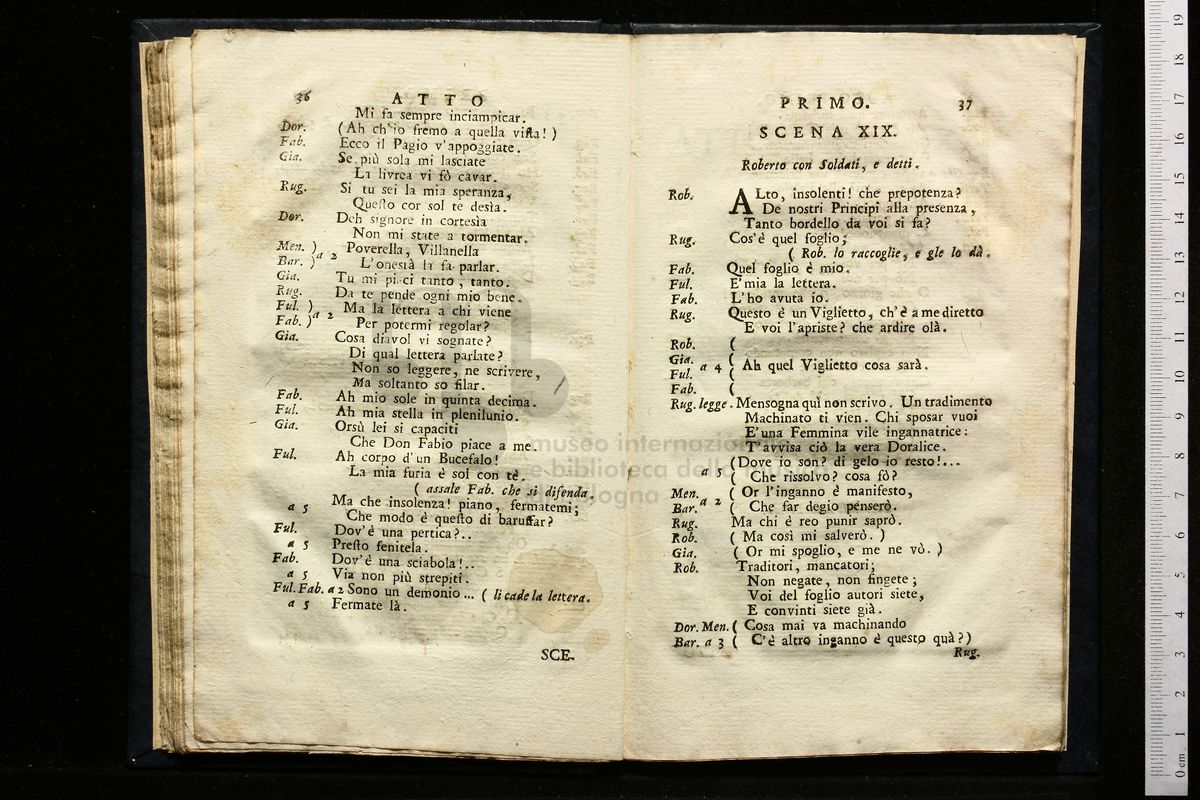 36 ATTO
Mi fa sempre inciampicar.
Dor. (Ah ch'io fremo a quella vista!)
Fab. Ecco il Pagio v'appoggiate.
Gia. Se più sola mi lasciate
La livrea vi fò cavar.
Rug. Si tu sei la mia speranza,
Questo cor sol te desìa.
Dor. Deh signore in cortesìa
Non mi state a tormentar.
Men. ) a 2 Poverella, Villanella
Bar. ) L'onestà la fa parlar.
Gia. Tu mi piaci tanto, tanto.
Rug. Da te pende ogni mio bene.
Ful. ) a 2 Ma la lettera a chi viene
Fab. ) Per potermi regolar?
Gia. Cosa diavol vi sognate?
Di qual lettera parlate?
Non so leggere, ne scrivere,
Ma soltanto so filar.
Fab. Ah mio sole in quinta decima.
Ful. Ah mia stella in plenilunio.
Gia. Orsù lei si capaciti
Che Don Fabio piace a me.
Ful. Ah corpo d'un Bucefalo!
La mia furia è sol con tè.
( assale Fab. che si difenda.
a 5 Ma che insolenza! piano, fermatemi;
Che modo è questo di baruffar?
Ful. Dov'è una pertica?..
a 5 Presto fenitela.
Fab. Dov'è una sciabola!..
a 5 Via non più strepiti.
Ful. Fab. a 2 Sono un demonio ... ( li cade la lettera.
a 5 Fermate là.
SCE-
PRIMO. 37
SCENA XIX.
Roberto con Soldati, e detti.
Rob. ALto, insolenti! che prepotenza?
De nostri Principi alla presenza,
Tanto bordello da voi si fa?
Rug. Cos'è quel foglio;
( Rob. lo raccoglie, e gle lo dà.
Fab. Quel foglio è mio.
Ful. E'mia la lettera.
Fab. L'ho avuta io.
Rug. Questo è un Viglietto, ch'è a me diretto
E voi l'apriste? che ardire olà.
Rob. (
Gia. (
Ful. a 4 ( Ah quel Viglietto cosa sarà.
Fab. (
Rug. legge. Mensogna quì non scrivo. Un tradimento
Machinato ti vien. Chi sposar vuoi
E'una Femmina vile ingannatrice:
T'avvisa ciò la vera Doralice.
a 5 (Dove io son? di gelo io resto!...
( Che rissolvo? cosa fò?
Men. a 2 ( Or l'inganno è manifesto,
Bar. ( Che far degio penserò.
Rug. Ma chi è reo punir saprò.
Rob. ( Ma così mi salverò. )
Gia. ( Or mi spoglio, e me ne vò. )
Rob. Traditori, mancatori;
Non negate, non fingete;
Voi del foglio autori siete,
E convinti siete già.
Dor. Men. ( Cosa mai va machinando
Bar. a 3 ( C'è altro inganno è questo quà?)
Rug.